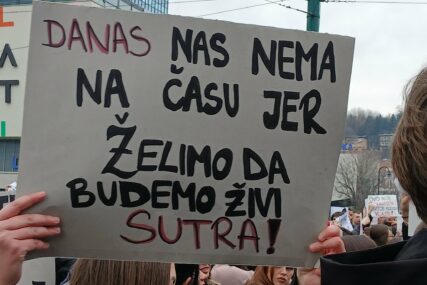 DANAS NAS NEMA
NA ČASU JER
ŽELIMO DA
BUDEMO ŽIVI
SUTRA!